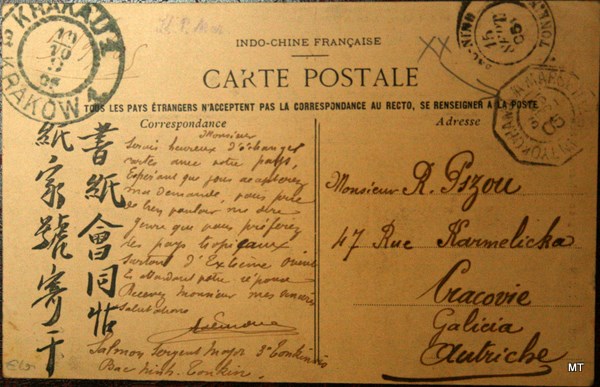 KRAKAU 2
KRAKÓW
INDO-CHINE FRANÇAISE
CARTE POSTALE
TOUS LES PAYS ÉTRANGERS N'ACCEPTENT PAS LA CORRESPONDANCE AU RECTO, SE RENSEIGNER A LA POSTE
Correspondance
Adresse
Monsieur
Serais heureux d'échanger
cartes avec votre pays,
Espérant que vous accepterez
ma demande, vous prie
de bien vouloir me dire
genre que vous préférez
les pays tropicaux
Surtout d'Extrême Orient
En attendant votre réponse
Recevez Monsieur mes sincères
Salutations
Salmon Sergent Major 3e Tonkinois
Bac Ninh Tonkin
書紙會同帖
紙家號寄干
Monsieur R. Pszou
47 Rue Karmelicka
Cracovie
Galicia
Autriche
MT